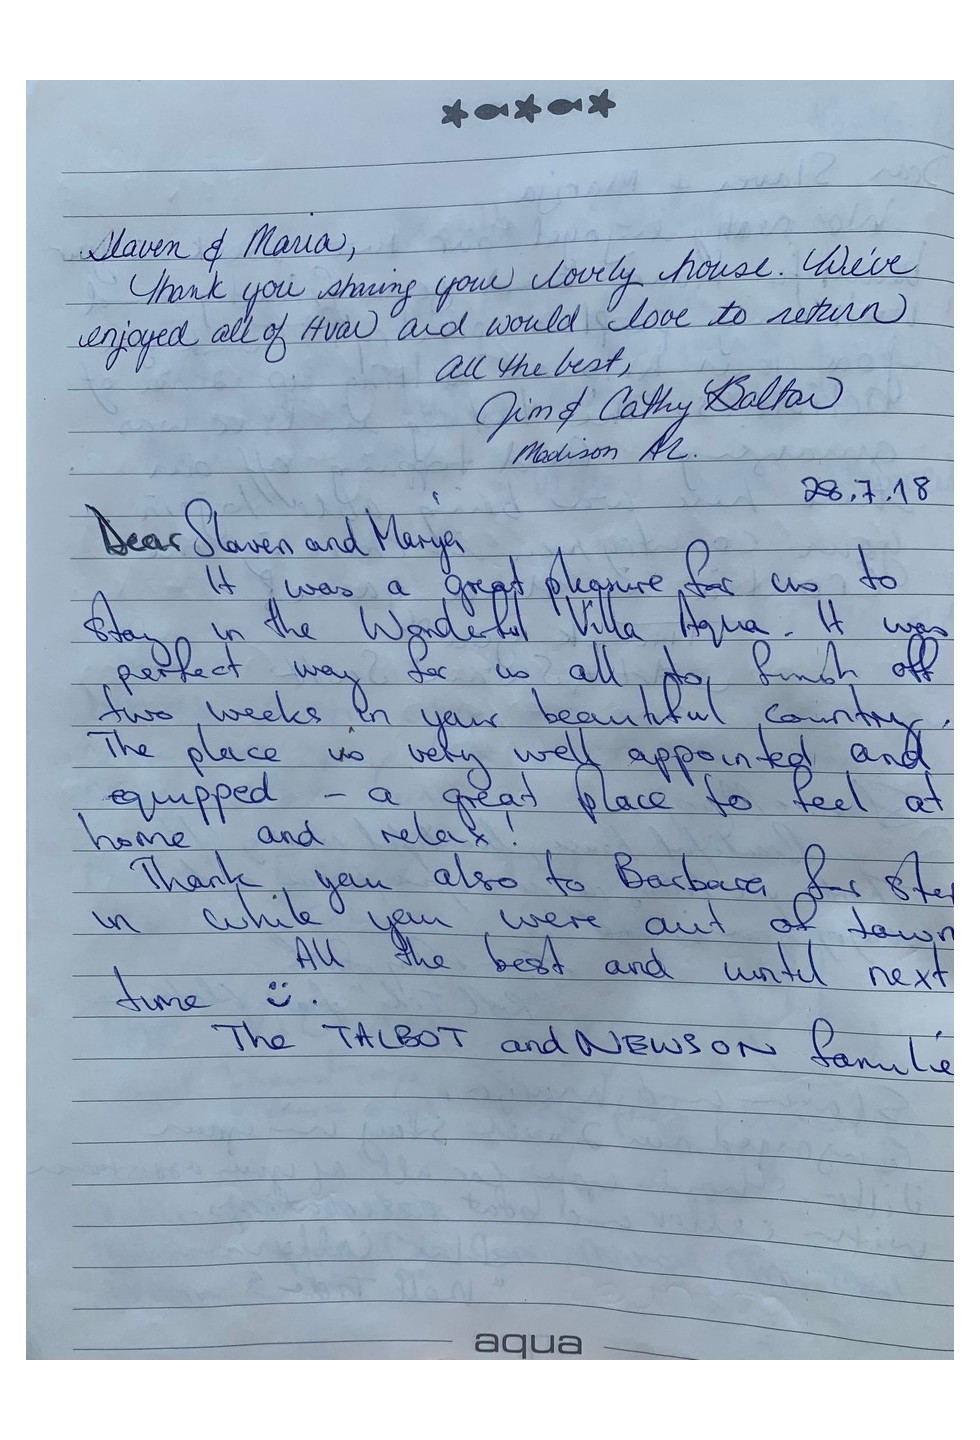 Slaven & Maria,
Thank you sharing your lovely house. We've
enjoyed all of Hvar and would love to return
All the best,
Jim & Cathy
Madison AL.
28.7.18
Dear Slaven and Marija
It was a great pleasure for us to
stay in the Wonderful Villa Aqua. It was
perfect way for us all to finish off
two weeks in your beautiful country.
The place is very well appointed and
equipped - a great place to feel at
home and relax!
Thank you also to Barbara for step
in while you were out of town
All the best and until next
time :).
The TALBOT and NEWSON familie
aqua